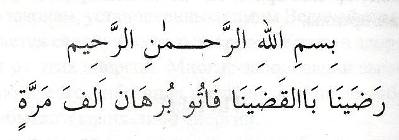 بِسمِ اللهِ الرَّحـــمٰنِ الرَّحِيمِ
رَضِينَا بَاالقَضَينَا فَاتُو بُرهَان الفَ مَرَّةٍ